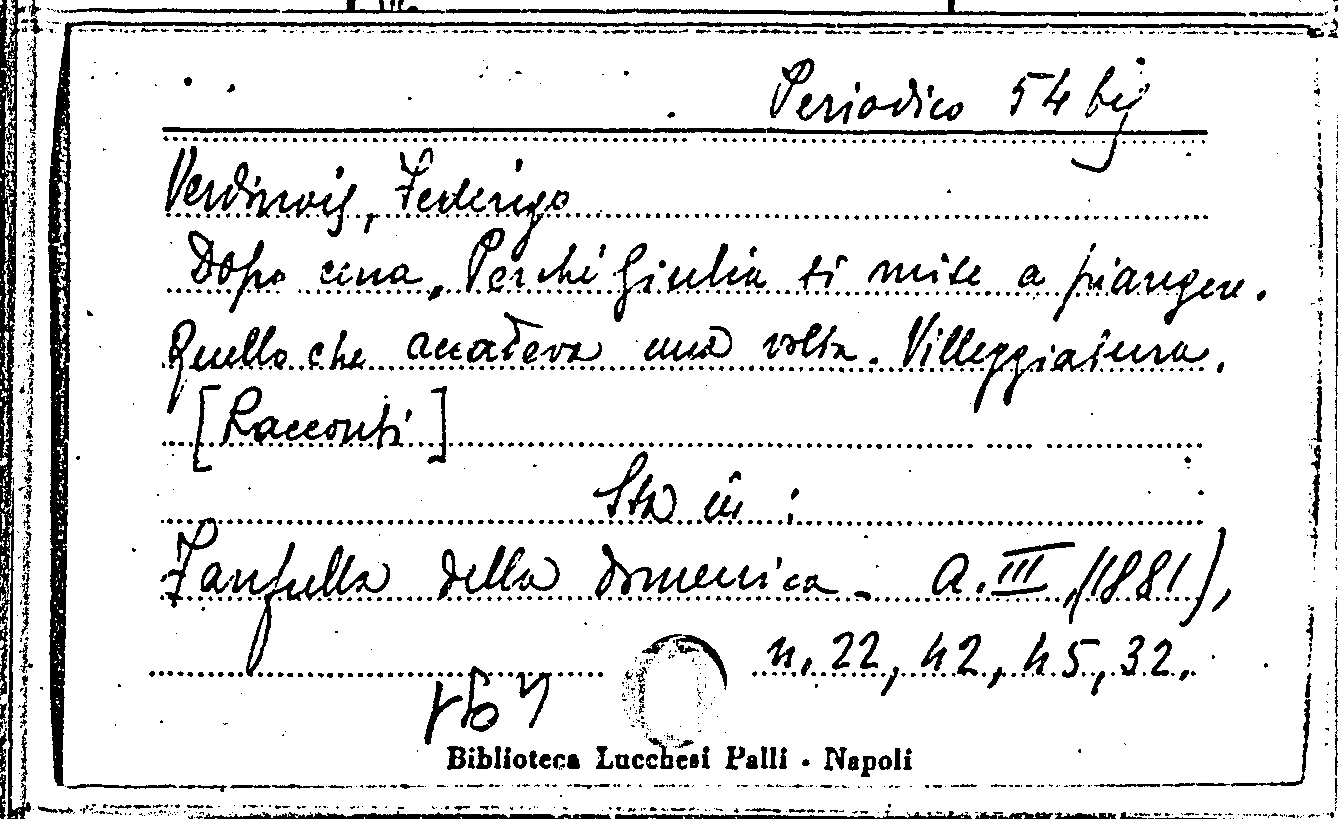 Periodico 54 bis
Verdinois, Federigo
Dopo cena, Perché Giulia si mise a piangere.
Quello che accadeva una volta. Villeggiatura.
[Racconti]
Sta in :
Fanfulla della domenica. a. III, (1881),
n. 22, 42, 45, 32.
Biblioteca Lucchesi Palli - Napoli